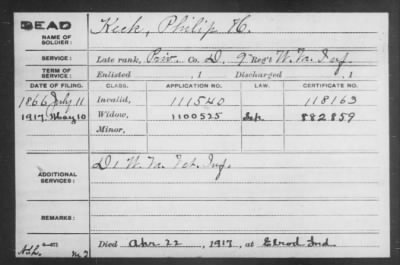 DEAD
NAME OF SOLDIER:
Keck, Philip H.
SERVICE:
Late rank, Priv. Co. D, 9" Reg't W. Va. Inf.
TERM OF SERVICE:
Enlisted , 1 Discharged , 1
DATE OF FILING. CLASS. APPLICATION NO. LAW. CERTIFICATE NO.
1866 July 11 Invalid, 111540 118163
1917 May 10 Widow, 1100525 882859
Minor,
ADDITIONAL SERVICES:
D, 1 W. Va. Vet. Inf.
REMARKS:
Died Apr. 22, 1917, at Elrod Ind.